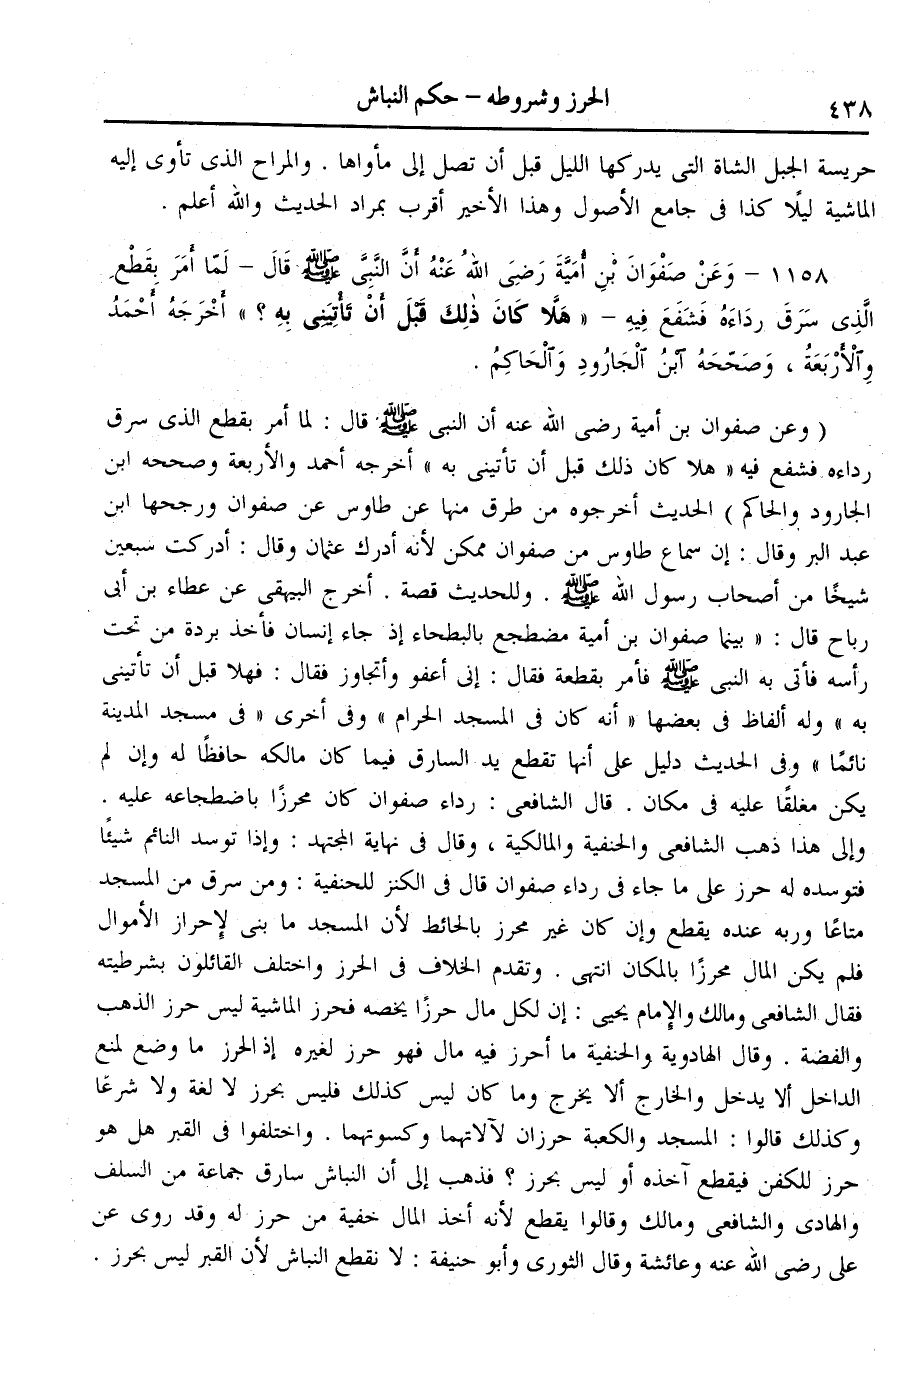 ٤٣٨ الحرز وشروطه – حكم النباش
حريسة الجبل الشاة التى يدركها الليل قبل أن تصل إلى مأواها . والمراح الذى تأوى إليه
الماشية ليلًا كذا فى جامع الأصول وهذا الأخير أقرب بمراد الحديث والله أعلم .
١١٥٨ – وَعَنْ صَفْوَانَ بْنِ أُمَيَّةَ رَضِىَ اللهُ عَنْهُ أَنَّ النَّبِىَّ ﷺ قَالَ – لَمّا أَمَرَ بِقَطْعِ
الَّذِى سَرَقَ رِدَاءَهُ فَشَفَعَ فِيهِ – « هَلَّا كَانَ ذٰلِكَ قَبْلَ أَنْ تَأْتِيَنِى بِهِ ؟ » أَخْرَجَهُ أَحْمَدُ
وِٱلْأَرْبَعَةُ ، وَصَحّحَهُ ٱبْنُ ٱلْجَارُودِ وَٱلْحَاكِمُ .
( وعن صفوان بن أمية رضى الله عنه أن النبى ﷺ قال : لما أمر بقطع الذى سرق
رداءه فشفع فيه « هلا كان ذلك قبل أن تأتينى به » أخرجه أحمد والأربعة وصححه ابن
الجارود والحاكم ) الحديث أخرجوه من طرق منها عن طاوس عن صفوان ورجحها ابن
عبد البر وقال : إن سماع طاوس من صفوان ممكن لأنه أدرك عثمان وقال : أدركت سبعين
شيخًا من أصحاب رسول الله ﷺ . وللحديث قصة . أخرج البيهقى عن عطاء بن أبى
رباح قال : « بينما صفوان بن أمية مضطجع بالبطحاء إذ جاء إنسان فأخذ بردة من تحت
رأسه فأتى به النبى ﷺ فأمر بقطعة فقال : إنى أعفو وأتجاوز فقال : فهلا قبل أن تأتينى
به » وله ألفاظ فى بعضها « أنه كان فى المسجد الحرام » وفى أخرى « فى مسجد المدينة
نائمًا » وفى الحديث دليل على أنها تقطع يد السارق فيما كان مالكه حافظًا له وإن لم
يكن مغلقًا عليه فى مكان . قال الشافعى : رداء صفوان كان محرزًا باضطجاعه عليه .
وإلى هذا ذهب الشافعى والحنفية والمالكية ، وقال فى نهاية المجتهد : وإذا توسد النائم شيئًا
فتوسده له حرز على ما جاء فى رداء صفوان قال فى الكنز للحنفية : ومن سرق من المسجد
متاعًا وربه عنده يقطع وإن كان غير محرز بالحائط لأن المسجد ما بنى لإحراز الأموال
فلم يكن المال محرزًا بالمكان انتهى . وتقدم الخلاف فى الحرز واختلف القائلون بشرطيته
فقال الشافعى ومالك والإمام يحيى : إن لكل مال حرزًا يخصه فحرز الماشية ليس حرز الذهب
والفضة . وقال الهادوية والحنفية ما أحرز فيه مال فهو حرز لغيره إذ الحرز ما وضع لمنع
الداخل ألا يدخل والخارج ألا يخرج وما كان ليس كذلك فليس بحرز لا لغة ولا شرعًا
وكذلك قالوا : المسجد والكعبة حرزان لآلاتهما وكسوتهما . واختلفوا فى القبر هل هو
حرز للكفن فيقطع آخذه أو ليس بحرز ؟ فذهب إلى أن النباش سارق جماعة من السلف
والهادى والشافعى ومالك وقالوا يقطع لأنه أخذ المال خفية من حرز له وقد روى عن
على رضى الله عنه وعائشة وقال الثورى وأبو حنيفة : لا نقطع النباش لأن القبر ليس بحرز .